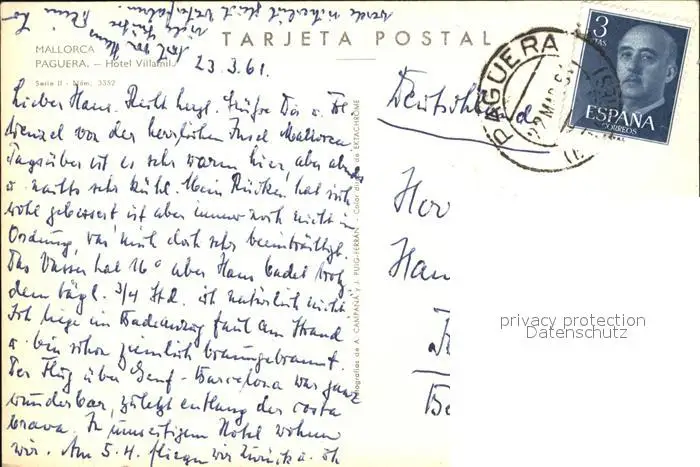 TARJETA POSTAL
MALLORCA
PAGUERA. – Hotel Villamil
Serie II - Núm. 3352
23.3.61.
Lieber Hans. Recht herzl. Grüße Dir u. Frl
Wenzel von der herrlichen Insel Mallorca
Tagsüber ist es sehr warm hier, aber abends
u. nachts sehr kühl. Mein Rücken hat sich
wohl gebessert ist aber immer noch nicht in
Ordnung, was mich doch sehr beeinträchtigt.
Das Wasser hat 16° aber Hans badet trotz
dem tägl. 3/4 Std. ich natürlich nicht.
Ich liege im Badeanzug faul am Strand
u. bin schon ziemlich braungebrannt.
Der Flug über Genf - Barcelona war ganz
wunderbar, zuletzt entlang der costa
brava. In unserigem Hotel wohnen
wir. Am 5.4. fliegen wir zurück u. ich
werde
viele Grüße
Fotografías de A. CAMPAÑÁ y J. PUIG-FERRÁN - Color de EKTACHROME
Deutschland
PAGUERA
3
PTAS
ESPAÑA
CORREOS
Her
Han
privacy protection
Datenschutz